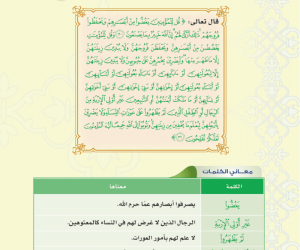 قال تعالى: ﴿ قُل لِّلْمُؤْمِنِينَ يَغُضُّوا مِنْ أَبْصَٰرِهِمْ وَيَحْفَظُوا
فُرُوجَهُمْ ذَٰلِكَ أَزْكَىٰ لَهُمْ إِنَّ اللَّهَ خَبِيرٌ بِمَا يَصْنَعُونَ ٣٠ وَقُل لِّلْمُؤْمِنَٰتِ
يَغْضُضْنَ مِنْ أَبْصَٰرِهِنَّ وَيَحْفَظْنَ فُرُوجَهُنَّ وَلَا يُبْدِينَ زِينَتَهُنَّ
إِلَّا مَا ظَهَرَ مِنْهَا وَلْيَضْرِبْنَ بِخُمُرِهِنَّ عَلَىٰ جُيُوبِهِنَّ وَلَا يُبْدِينَ زِينَتَهُنَّ
إِلَّا لِبُعُولَتِهِنَّ أَوْ ءَابَآئِهِنَّ أَوْ ءَابَآءِ بُعُولَتِهِنَّ أَوْ أَبْنَآئِهِنَّ
أَوْ أَبْنَآءِ بُعُولَتِهِنَّ أَوْ إِخْوَٰنِهِنَّ أَوْ بَنِىٓ إِخْوَٰنِهِنَّ أَوْ بَنِىٓ أَخَوَٰتِهِنَّ
أَوْ نِسَآئِهِنَّ أَوْ مَا مَلَكَتْ أَيْمَٰنُهُنَّ أَوِ التَّٰبِعِينَ غَيْرِ أُولِى الْإِرْبَةِ مِنَ
الرِّجَالِ أَوِ الطِّفْلِ الَّذِينَ لَمْ يَظْهَرُوا عَلَىٰ عَوْرَٰتِ النِّسَآءِ وَلَا يَضْرِبْنَ
بِأَرْجُلِهِنَّ لِيُعْلَمَ مَا يُخْفِينَ مِن زِينَتِهِنَّ وَتُوبُوا إِلَى اللَّهِ جَمِيعًا أَيُّهَ الْمُؤْمِنُونَ
لَعَلَّكُمْ تُفْلِحُونَ ٣١ ﴾
معاني الكلمات
الكلمة معناها
يَغُضُّوا يصرفوا أبصارهم عمّا حرم الله.
غَيْرِ أُولِى الْإِرْبَةِ الرجال الذين لا غرض لهم في النساء كالمعتوهين.
لَمْ يَظْهَرُوا لا علم لهم بأمور العورات.